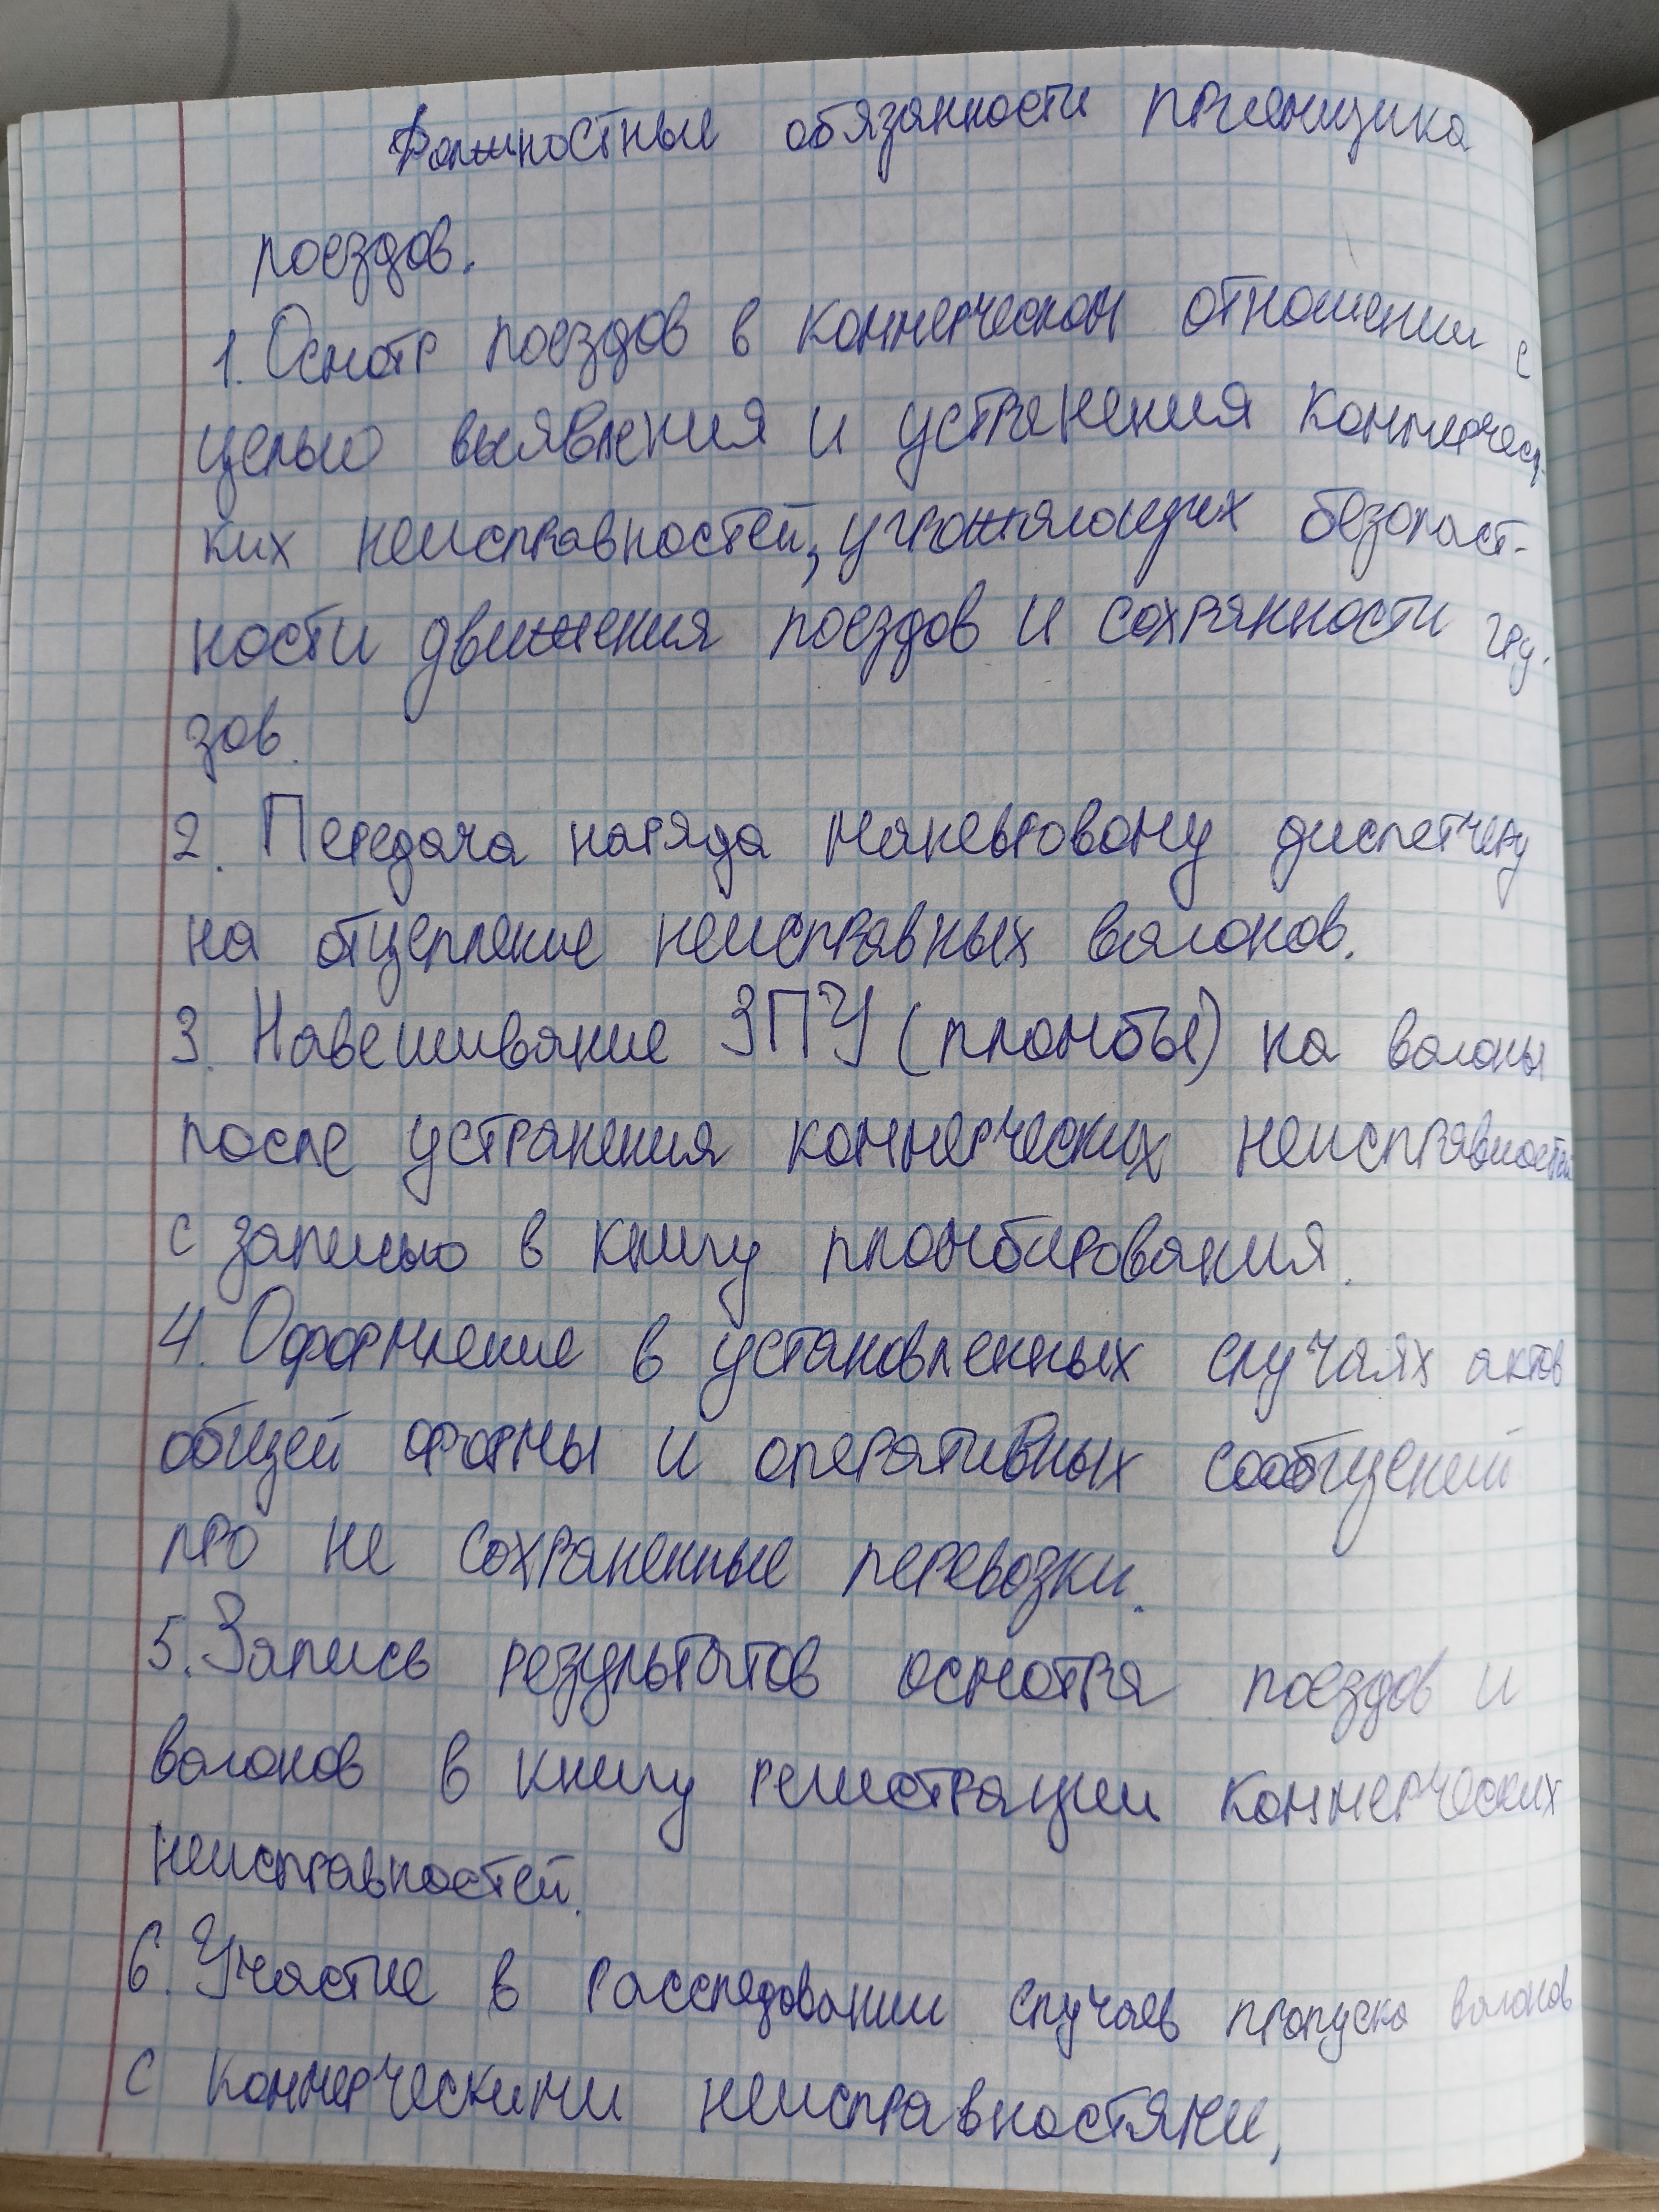 Должностные обязанности приемщика
поездов.
1. Осмотр поездов в коммерческом отношении с
целью выявления и устранения коммерчес-
ких неисправностей, угрожающих безопаст-
ности движения поездов и сохранности гру-
зов.
2. Передача наряда маневровому диспетчеру
на отцепление неисправных вагонов.
3. Навешивание ЗПУ (пломбы) на вагоны
после устранения коммерческих неисправностей
с записью в книгу пломбирования.
4. Оформление в установленных случаях актов
общей формы и оперативных сообщений
про не сохраненные перевозки.
5. Запись результатов осмотра поездов и
вагонов в книгу регистрации коммерческих
неисправностей.
6. Участие в расследовании случаев пропуска вагонов
с коммерческими неисправностями,